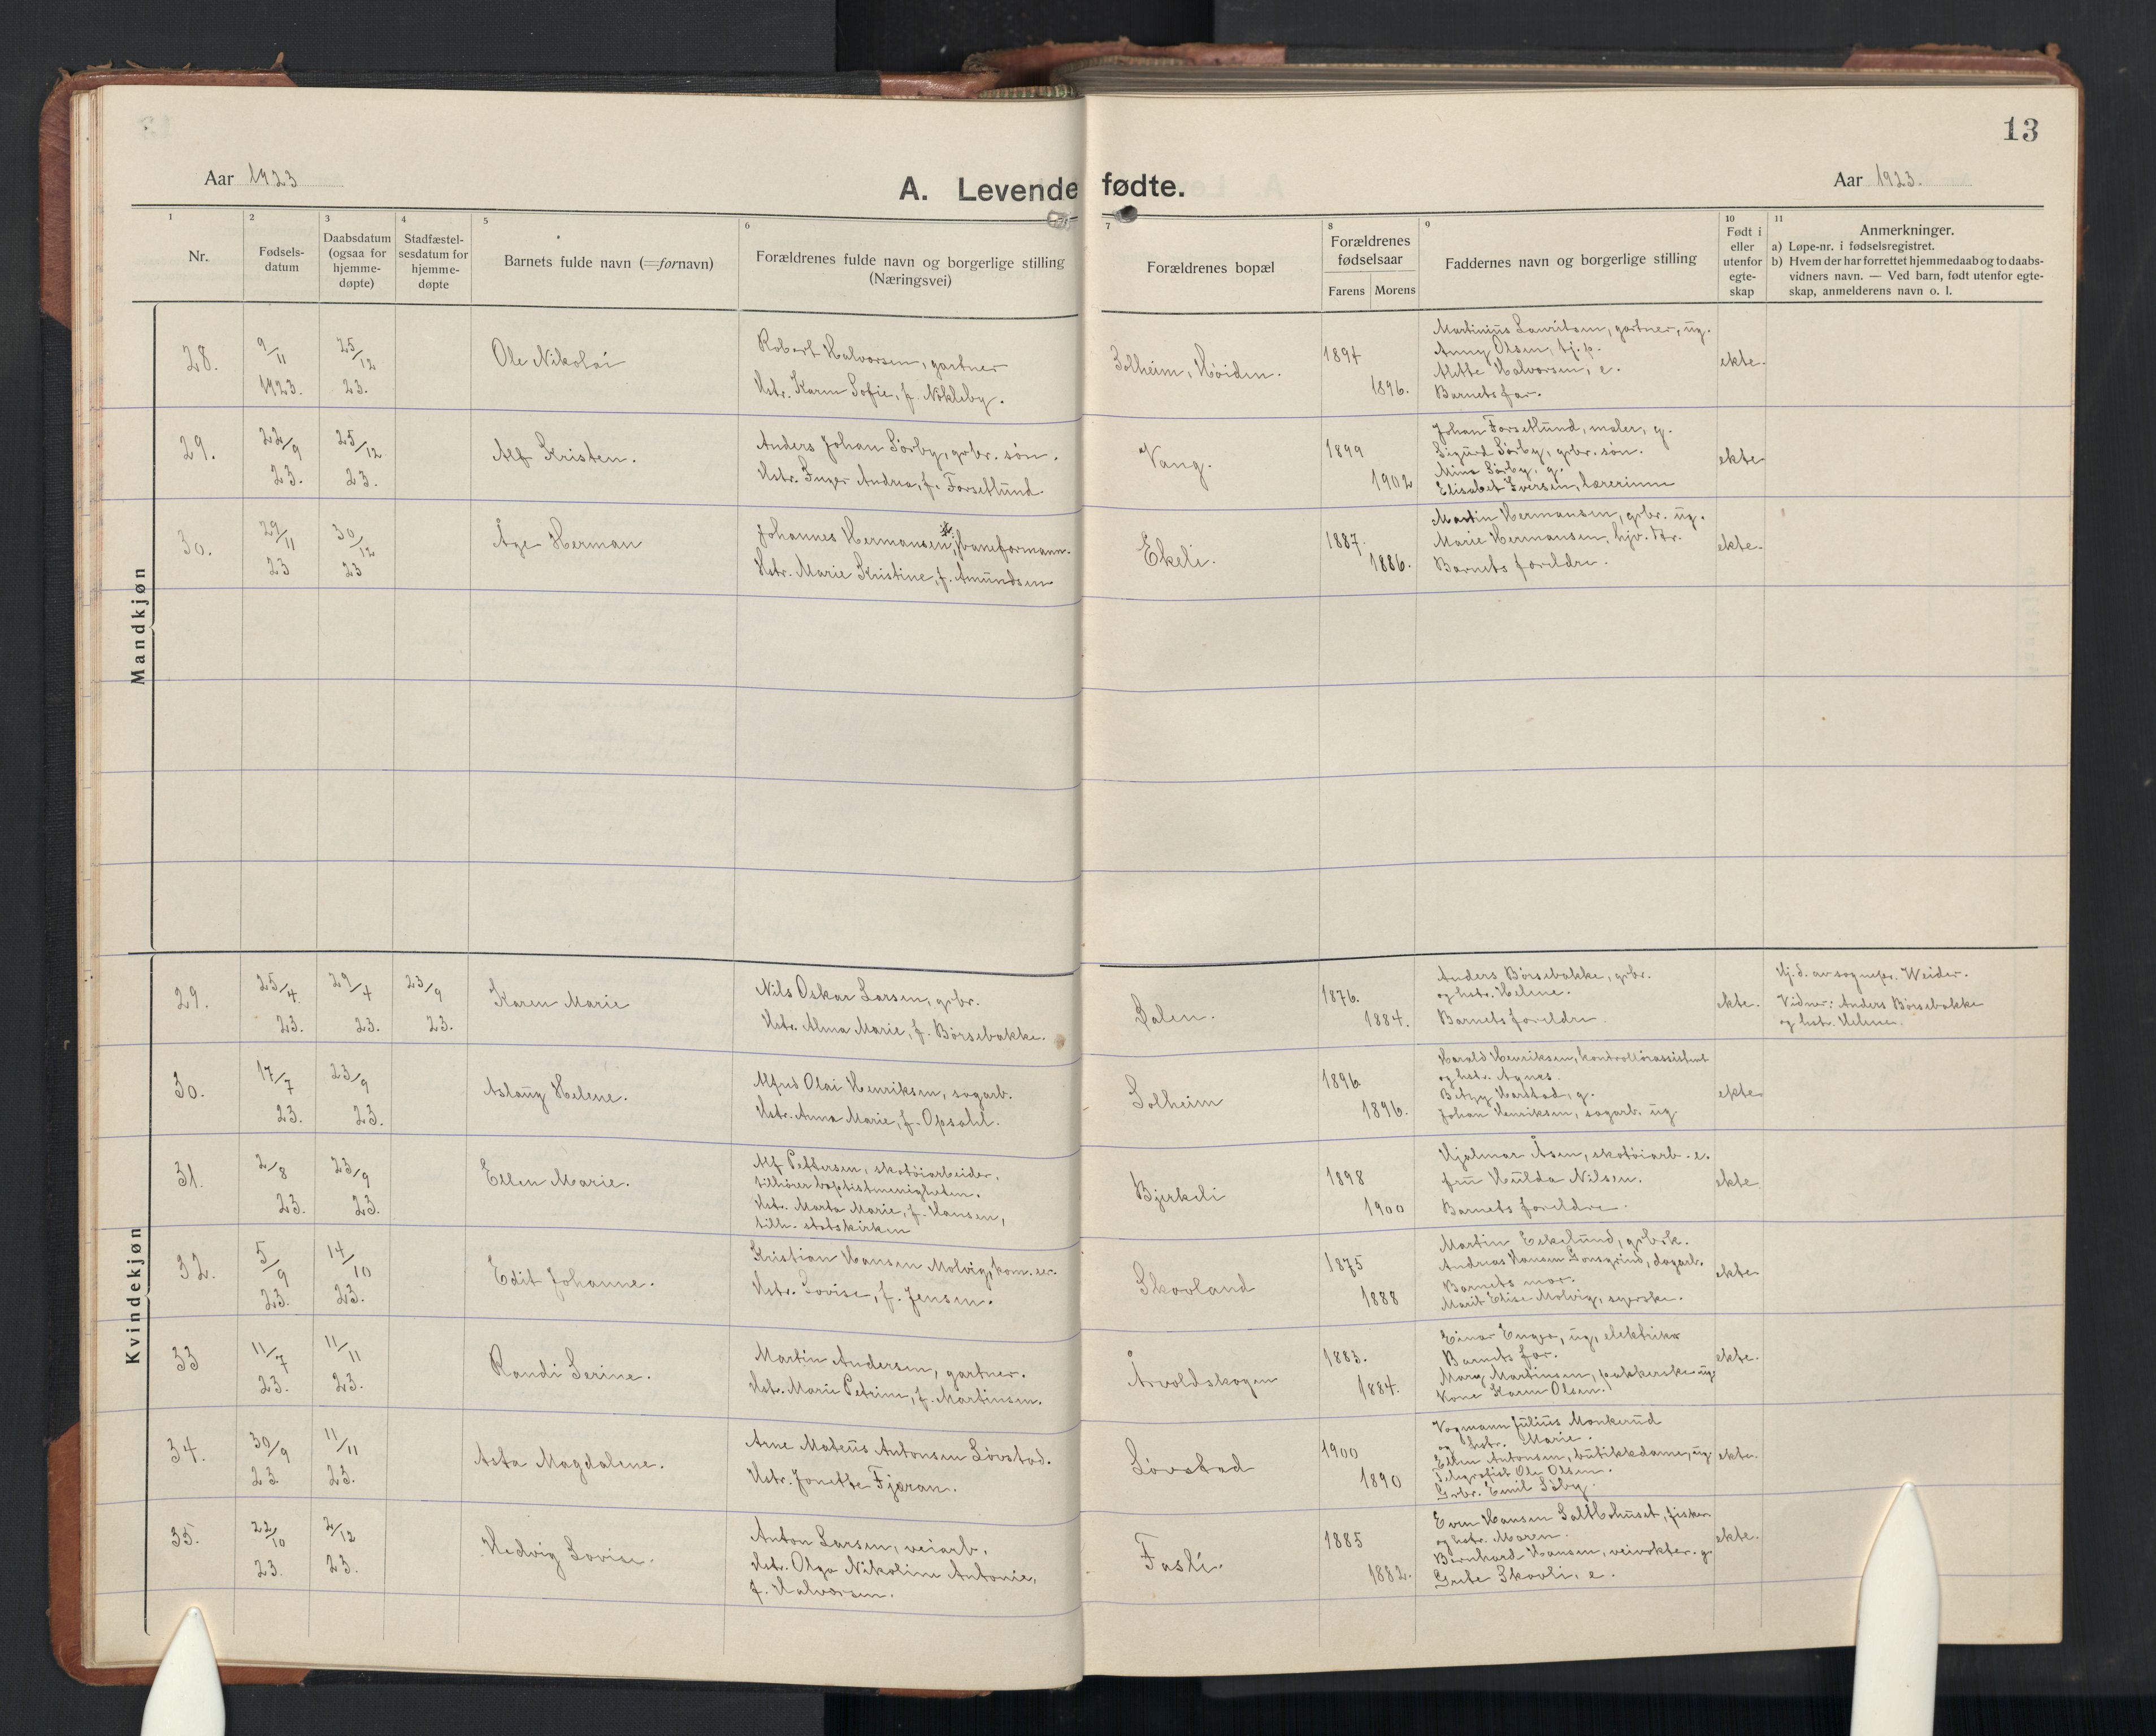 13
Aar 1923
A. Levende fødte.
Aar 1923.
1 2 3 4 5 6 7 8 9 10 11
Nr.
Fødsels-
datum
Daabsdatum
(ogsaa for
hjemme-
døpte)
Stadfæstel-
sesdatum for
hjemme-
døpte
Barnets fulde navn (=fornavn)
Forældrenes fulde navn og borgerlige stilling
(Næringsvei)
Forældrenes bopæl
Forældrenes
fødselsaar
Farens Morens
Faddernes navn og borgerlige stilling
Født i
eller
utenfor
egte-
skap
Anmerkninger.
a) Løpe-nr. i fødselsregistret.
b) Hvem der har forrettet hjemmedaab og to daabs-
vidners navn. — Ved barn, født utenfor egte-
skap, anmelderens navn o. l.
Mandkjøn
28.
9/11
1923.
25/12
23.
Ole Nikolai
Robert Halvorsen, gartner
Hstr. Karen Sofie, f. Nøkleby.
Solheim, Høiden.
1894
1896.
Martinius Lauritsen, gartner, ug.
Anny Olsen, tj.p.
Alette Halvorsen, e.
Barnets far.
ekte.
29.
22/9
23.
25/12
23.
Alf Kristen.
Anders Johan Sørby, grbr. søn.
Hstr. Inger Andrea, f. Forsetlund.
Vang.
1899
1902
Johan Forsetlund, maler, g.
Sigurd Sørby, grbr. søn.
Mina Sørby, g.
Elisabet Iversen, lærerinne
ekte
30.
29/11
23
30/12
23
Åge Herman
Johannes Hermansen, baneformann.
Hstr. Marie Kristine, f. Amundsen
Ekeli.
1887.
1886.
Martin Hermansen, grbr. ug.
Marie Hermansen, hjv. dtr.
Barnets foreldre.
ekte.
Kvindekjøn
29.
25/4
23.
29/4
23.
23/9
23.
Karen Marie
Nils Oskar Larsen, grbr.
Hstr. Alma Marie, f. Børsebakke.
Dalen.
1876.
1884.
Anders Børsebakke, grbr.
og hstr. Helene.
Barnets foreldre.
ekte.
Hj.d. av sognepr. Weider.
Vidner: Anders Børsebakke
og hstr. Helene.
30.
17/7
23.
23/9
23.
Aslaug Helene.
Alfred Olai Henriksen, sagarb.
Hstr. Anna Marie, f. Opsahl.
Solheim
1896
1896.
Harald Henriksen, kontrollørassistent
og hstr. Agnes.
Betzy Harstad, g.
Johan Henriksen, sagarb. ug
ekte
31.
2/8
23.
23/9
23.
Ellen Marie.
Alf Pettersen, skotøiarbeider,
tilhører baptistmenigheten.
Hstr. Marta Marie, f. Hansen,
tilh. statskirken
Bjerkeli
1898
1900
Hjalmar Åsen, skotøiarb. e.
fru Hulda Nilsen.
Barnets foreldre.
ekte.
32.
5/9
23.
14/10
23.
Edit Johanne.
Kristian Hansen Molvig, kom.
Hstr. Lovise, f. Jensen.
Skovland
1875
1888
Martin Eskelund, grbr.
Andreas Hansen dagarb.
Barnets mor.
Marit Elise Molvig, syerske.
ekte
33
11/7
23.
11/11
23.
Randi Serine.
Martin Andersen, gartner.
Hstr. Marie Petrine, f. Martinsen.
Årvoldskogen
1883.
1884.
Einar Enger, ug, elektriker
Barnets far.
Mary Martinsen, pakkerske ug.
Kone Karen Olsen.
ekte.
34.
30/9
23.
11/11
23.
Asta Magdalene.
Arne Mateus Antonsen Løvstad.
Hstr. Jonette Fjæran.
Løvstad
1900
1890
Vogmann Julius Monkerud
og hstr. Marie.
Ellen Antonsen, butikkdame, ug.
Telegrafist Ole Olsen.
Grbr. Emil
ekte.
35.
22/10
23.
2/12
23.
Hedvig Lovise.
Anton Larsen, veiarb.
Hstr. Olga Nikoline Antonie,
f. Halvorsen.
Fasli.
1885
1882.
Even Hansen Saltbohuset, fisker
og hstr. Maren.
Bernhard Hansen, veivokter. g.
Grete Skovli, e.
ekte.